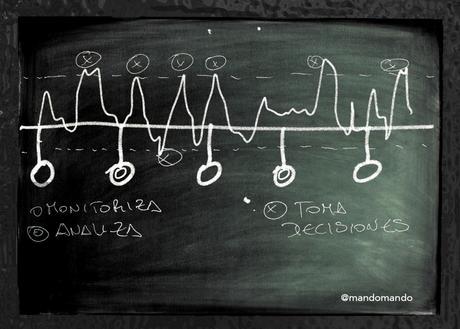 MONITORIZA
ANALIZA
TOMA
DECISIONES
@mandomando